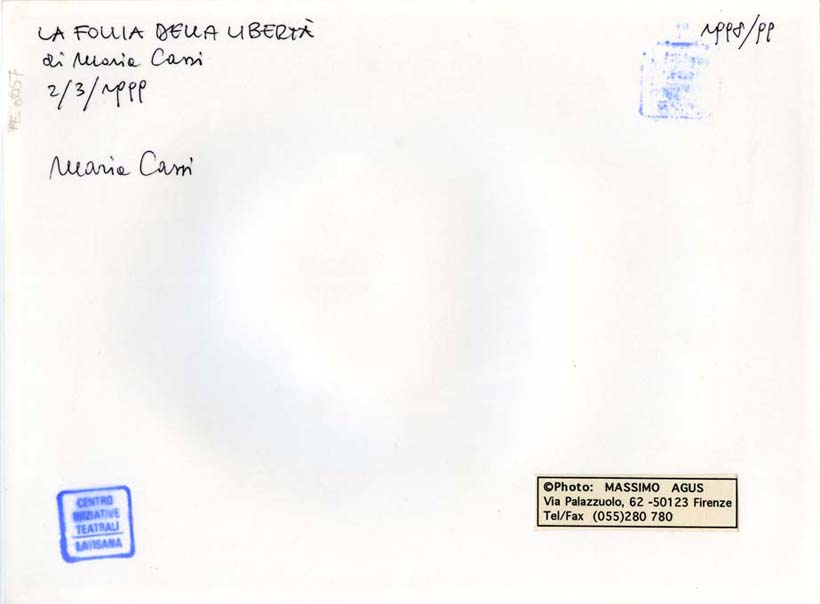 LA FOLLIA DELLA LIBERTÀ
di Maria Cassi
2/3/1999
Maria Cassi
1998/99
CENTRO
INIZIATIVE
TEATRALI
©Photo: MASSIMO AGUS
Via Palazzuolo, 62 -50123 Firenze
Tel/Fax (055)280 780